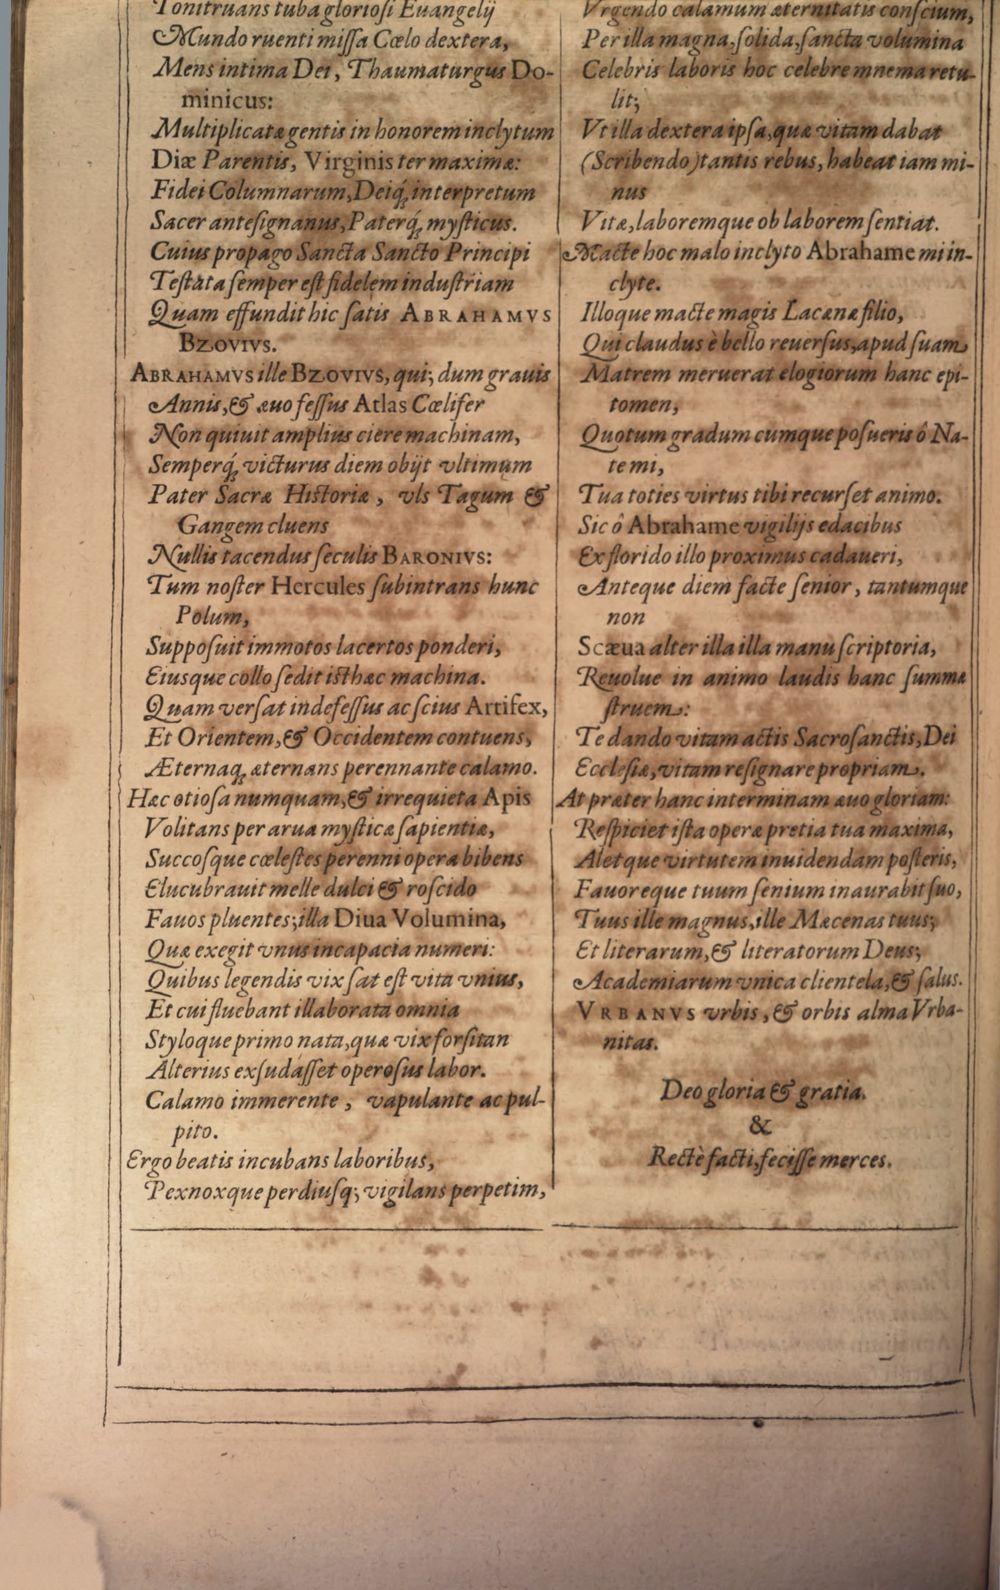 Tonitruans tuba gloriosi Euangelij
Mundo ruenti missa Cœlo dextera,
Mens intima Dei, Thaumaturgus Do-
minicus:
Multiplicatæ gentis in honorem inclytum
Diæ Parentis, Virginis ter maximæ:
Fidei Columnarum, Deiq; interpretum
Sacer antesignanus, Paterq; mysticus.
Cuius propago Sancta Sancto Principi
Testata semper est fidelem industriam
Quam effundit hic satis ABRAHAMVS
BZOVIVS.
ABRAHAMVS ille BZOVIVS, qui; dum grauis
Annis, & æuo fessus Atlas Cœlifer
Non quiuit amplius ciere machinam,
Semperq; victurus diem obijt vltimum
Pater Sacræ Historiæ, vls Tagum &
Gangem cluens
Nullis tacendus seculis BARONIVS:
Tum noster Hercules subintrans hunc
Polum,
Supposuit immotos lacertos ponderi,
Eiusque collo sedit isthæc machina.
Quam versat indefessus ac scius Artifex,
Et Orientem, & Occidentem contuens,
Æternaq; æternans perennante calamo.
Hæc otiosa numquam, & irrequieta Apis
Volitans per arua mysticæ sapientiæ,
Succosque cœlestes perenni opera bibens
Elucubrauit melle dulci & roscido
Fauos pluentes; illa Diua Volumina,
Quæ exegit vnus incapacia numeri:
Quibus legendis vix sat est vita vnius,
Et cui fluebant illaborata omnia
Styloque primo nata, quæ vix forsitan
Alterius exsudasset operosus labor.
Calamo immerente, vapulante ac pul-
pito.
Ergo beatis incubans laboribus,
Pexnoxque perdiusq; vigilans perpetim,
Vrgendo calamum æternitatis conscium,
Per illa magna, solida, sancta volumina
Celebris laboris hoc celebre mnema retu-
lit;
Vt illa dextera ipsa, quæ vitam dabat
(Scribendo) tantis rebus, habeat iam mi-
nus
Vitæ, laboremque ob laborem sentiat.
Macte hoc malo inclyto Abrahame mi in-
clyte.
Illoque macte magis Lacænæ filio,
Qui claudus è bello reuersus, apud suam
Matrem meruerat elogiorum hanc epi-
tomen,
Quotum gradum cumque posueris ô Na-
te mi,
Tua toties virtus tibi recurset animo.
Sic ô Abrahame vigilijs edacibus
Ex florido illo proximus cadaueri,
Anteque diem facte senior, tantumque
non
Scæua alter illa illa manu scriptoria,
Reuolue in animo laudis hanc summæ
struem:
Te dando vitam actis Sacrosanctis, Dei
Ecclesiæ, vitam resignare propriam.
At præter hanc interminam æuo gloriam:
Respiciet ista operæ pretia tua maxima,
Aletque virtutem inuidendam posteris,
Fauoreque tuum senium inaurabit suo,
Tuus ille magnus, ille Mæcenas tuus;
Et literarum, & literatorum Deus;
Academiarum vnica clientela, & salus.
VRBANVS vrbis, & orbis alma Vrba-
nitas.
Deo gloria & gratia.
&
Rectè facti, fecisse merces.